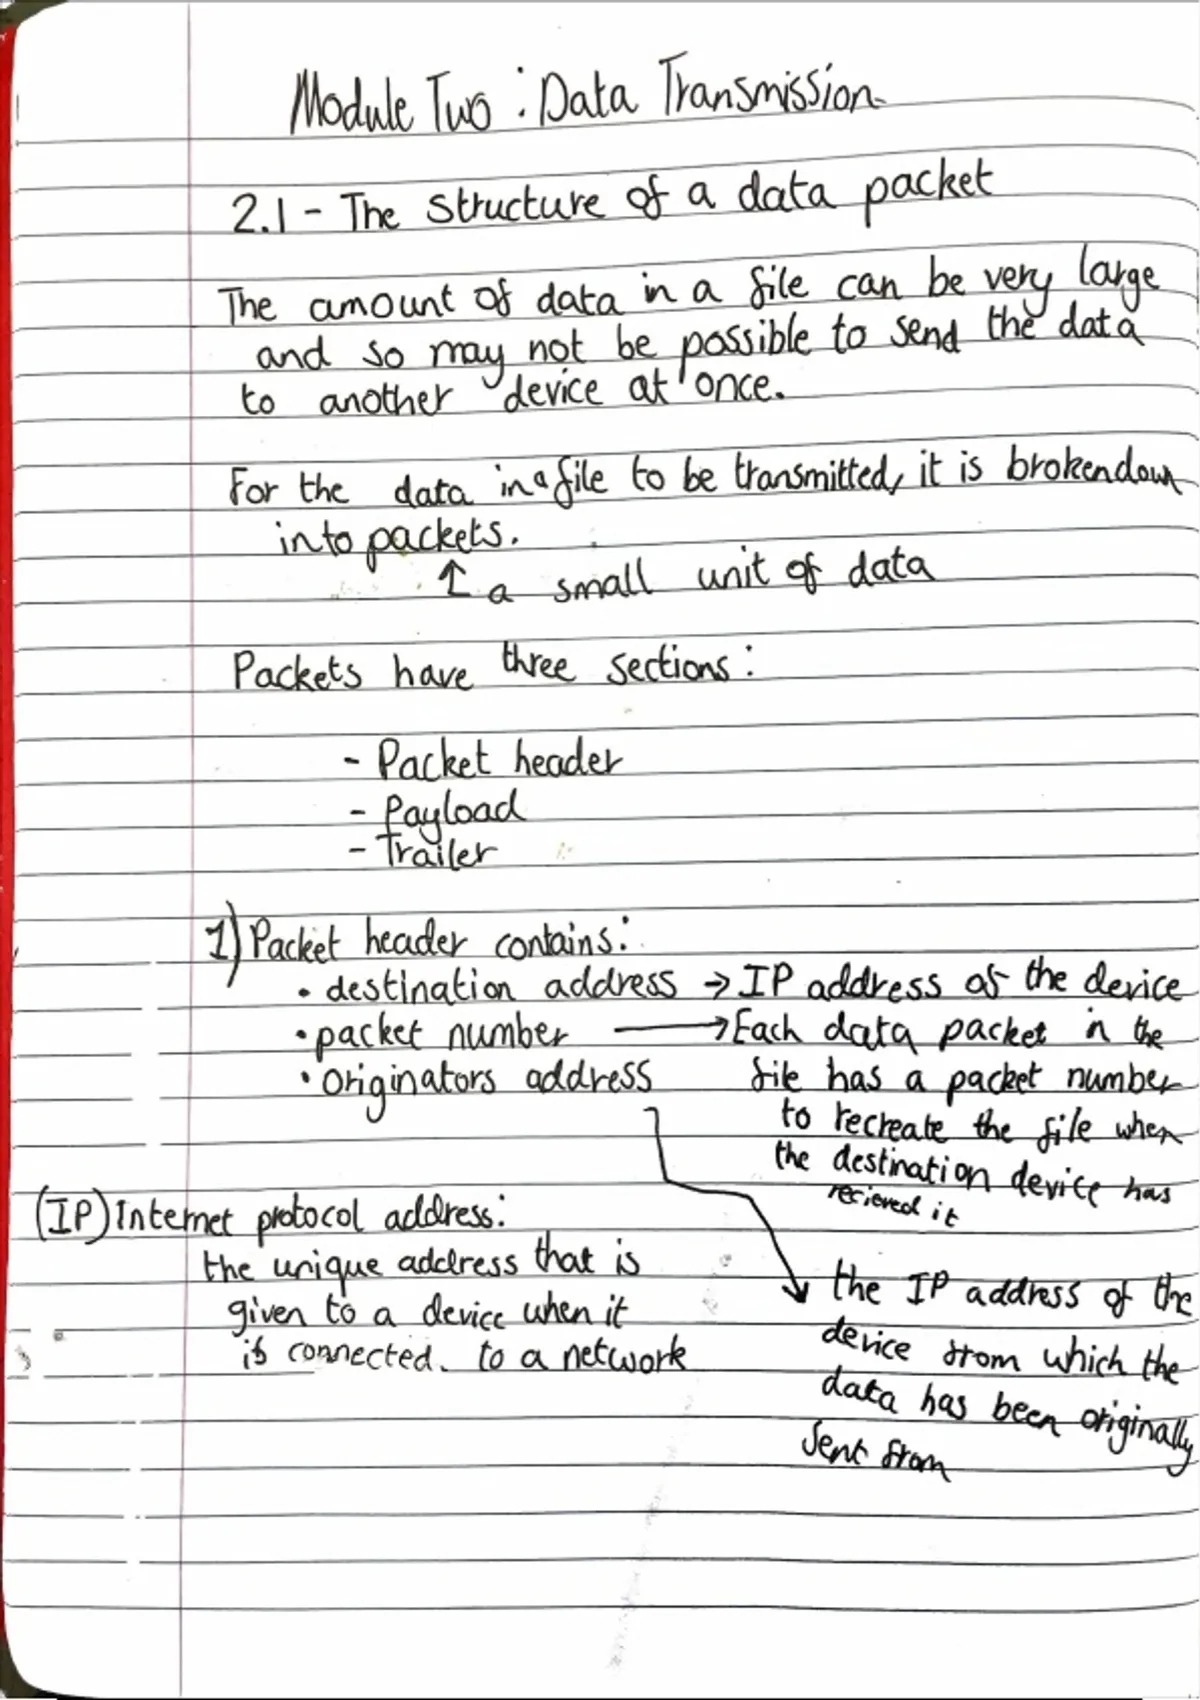 Module Two : Data Transmission
2.1 - The structure of a data packet
The amount of data in a file can be very large
and so may not be possible to send the data
to another device at once.
For the data in a file to be transmitted, it is brokendown
into packets.
↑ a small unit of data
Packets have three sections:
- Packet header
- Payload
- Trailer
1) Packet header contains:
• destination address → IP address of the device
• packet number → Each data packet in the
• originators address file has a packet number
to recreate the file when
the destination device has
recieved it
(IP) Internet protocol address:
the unique address that is
given to a device when it
is connected. to a network
the IP address of the
device from which the
data has been originally
sent from